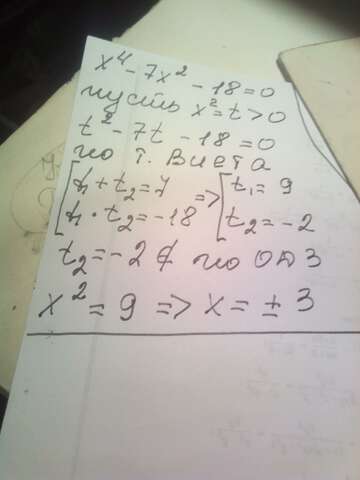 x⁴ - 7x² - 18 = 0
пусть x² = t > 0
t² - 7t - 18 = 0
по т. Виета
[t₁ + t₂ = 7 => [t₁ = 9
t₁ · t₂ = -18 t₂ = -2
t₂ = -2 ∉ по ОДЗ
x² = 9 => x = ± 3